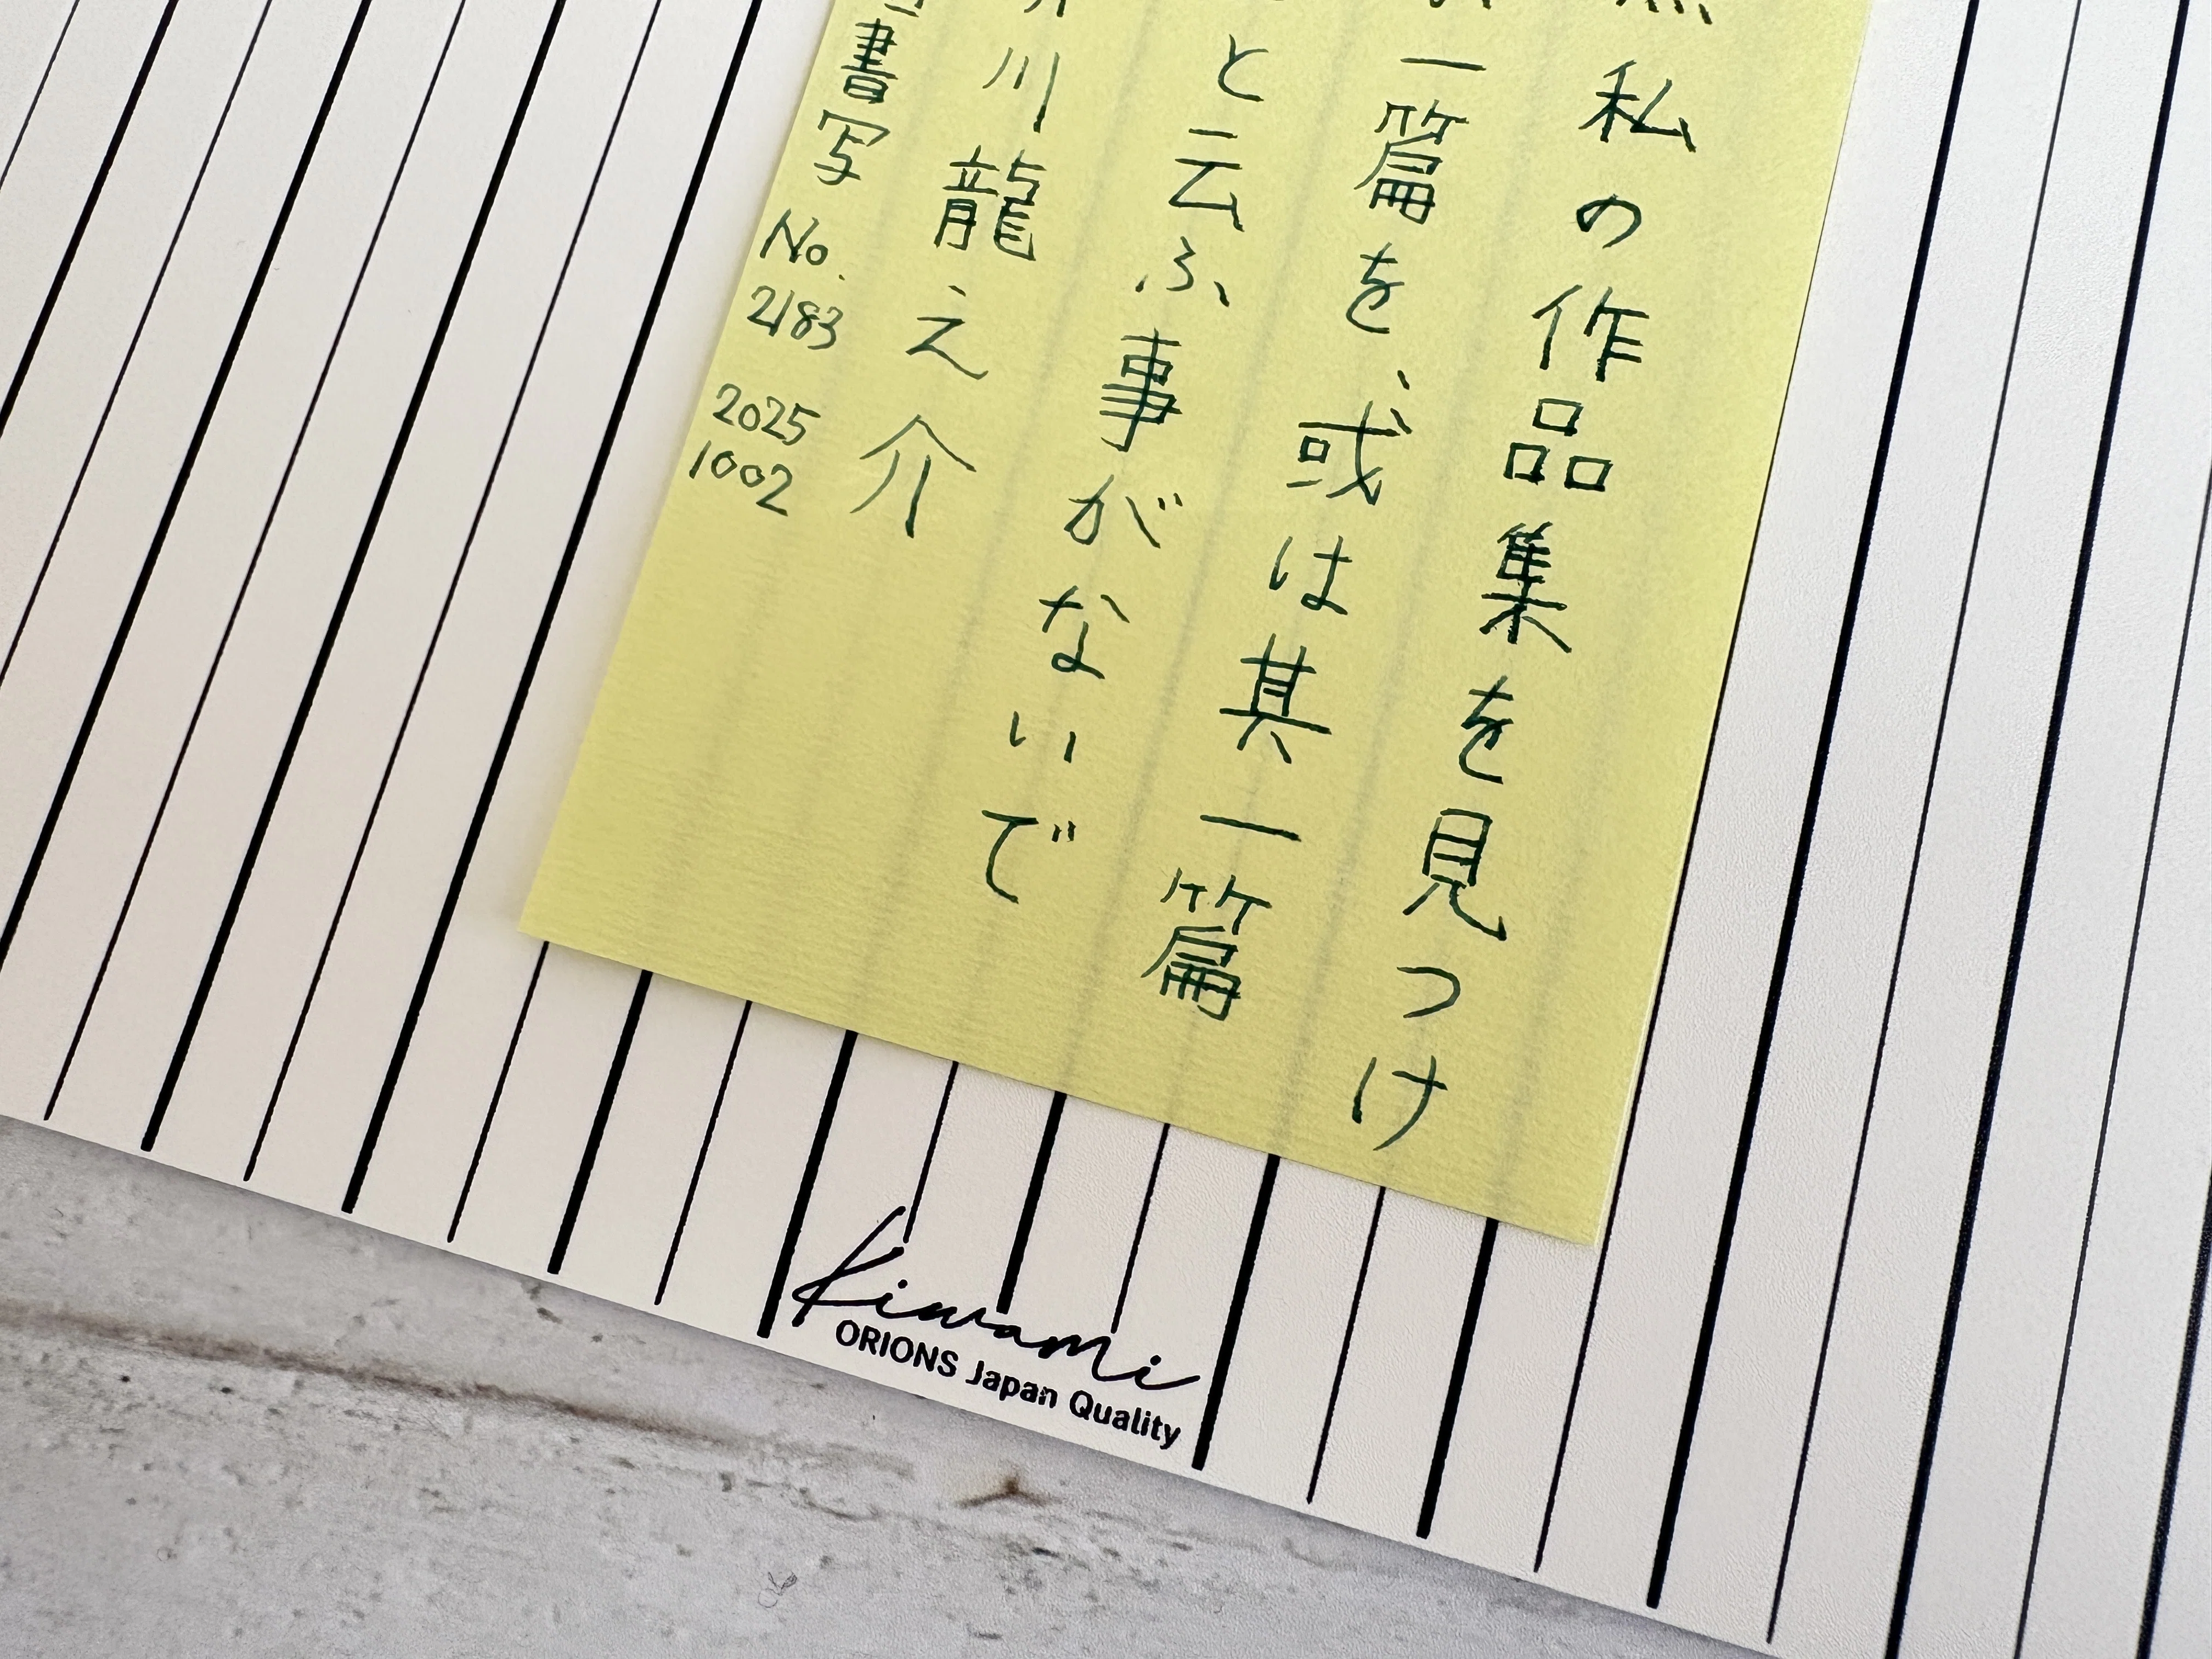 私の作品集を見つけ
一篇を、或は其一篇
と云ふ事がないで
川龍之介
書写 No. 2183 2025 1002
Kiwami
ORIONS Japan Quality